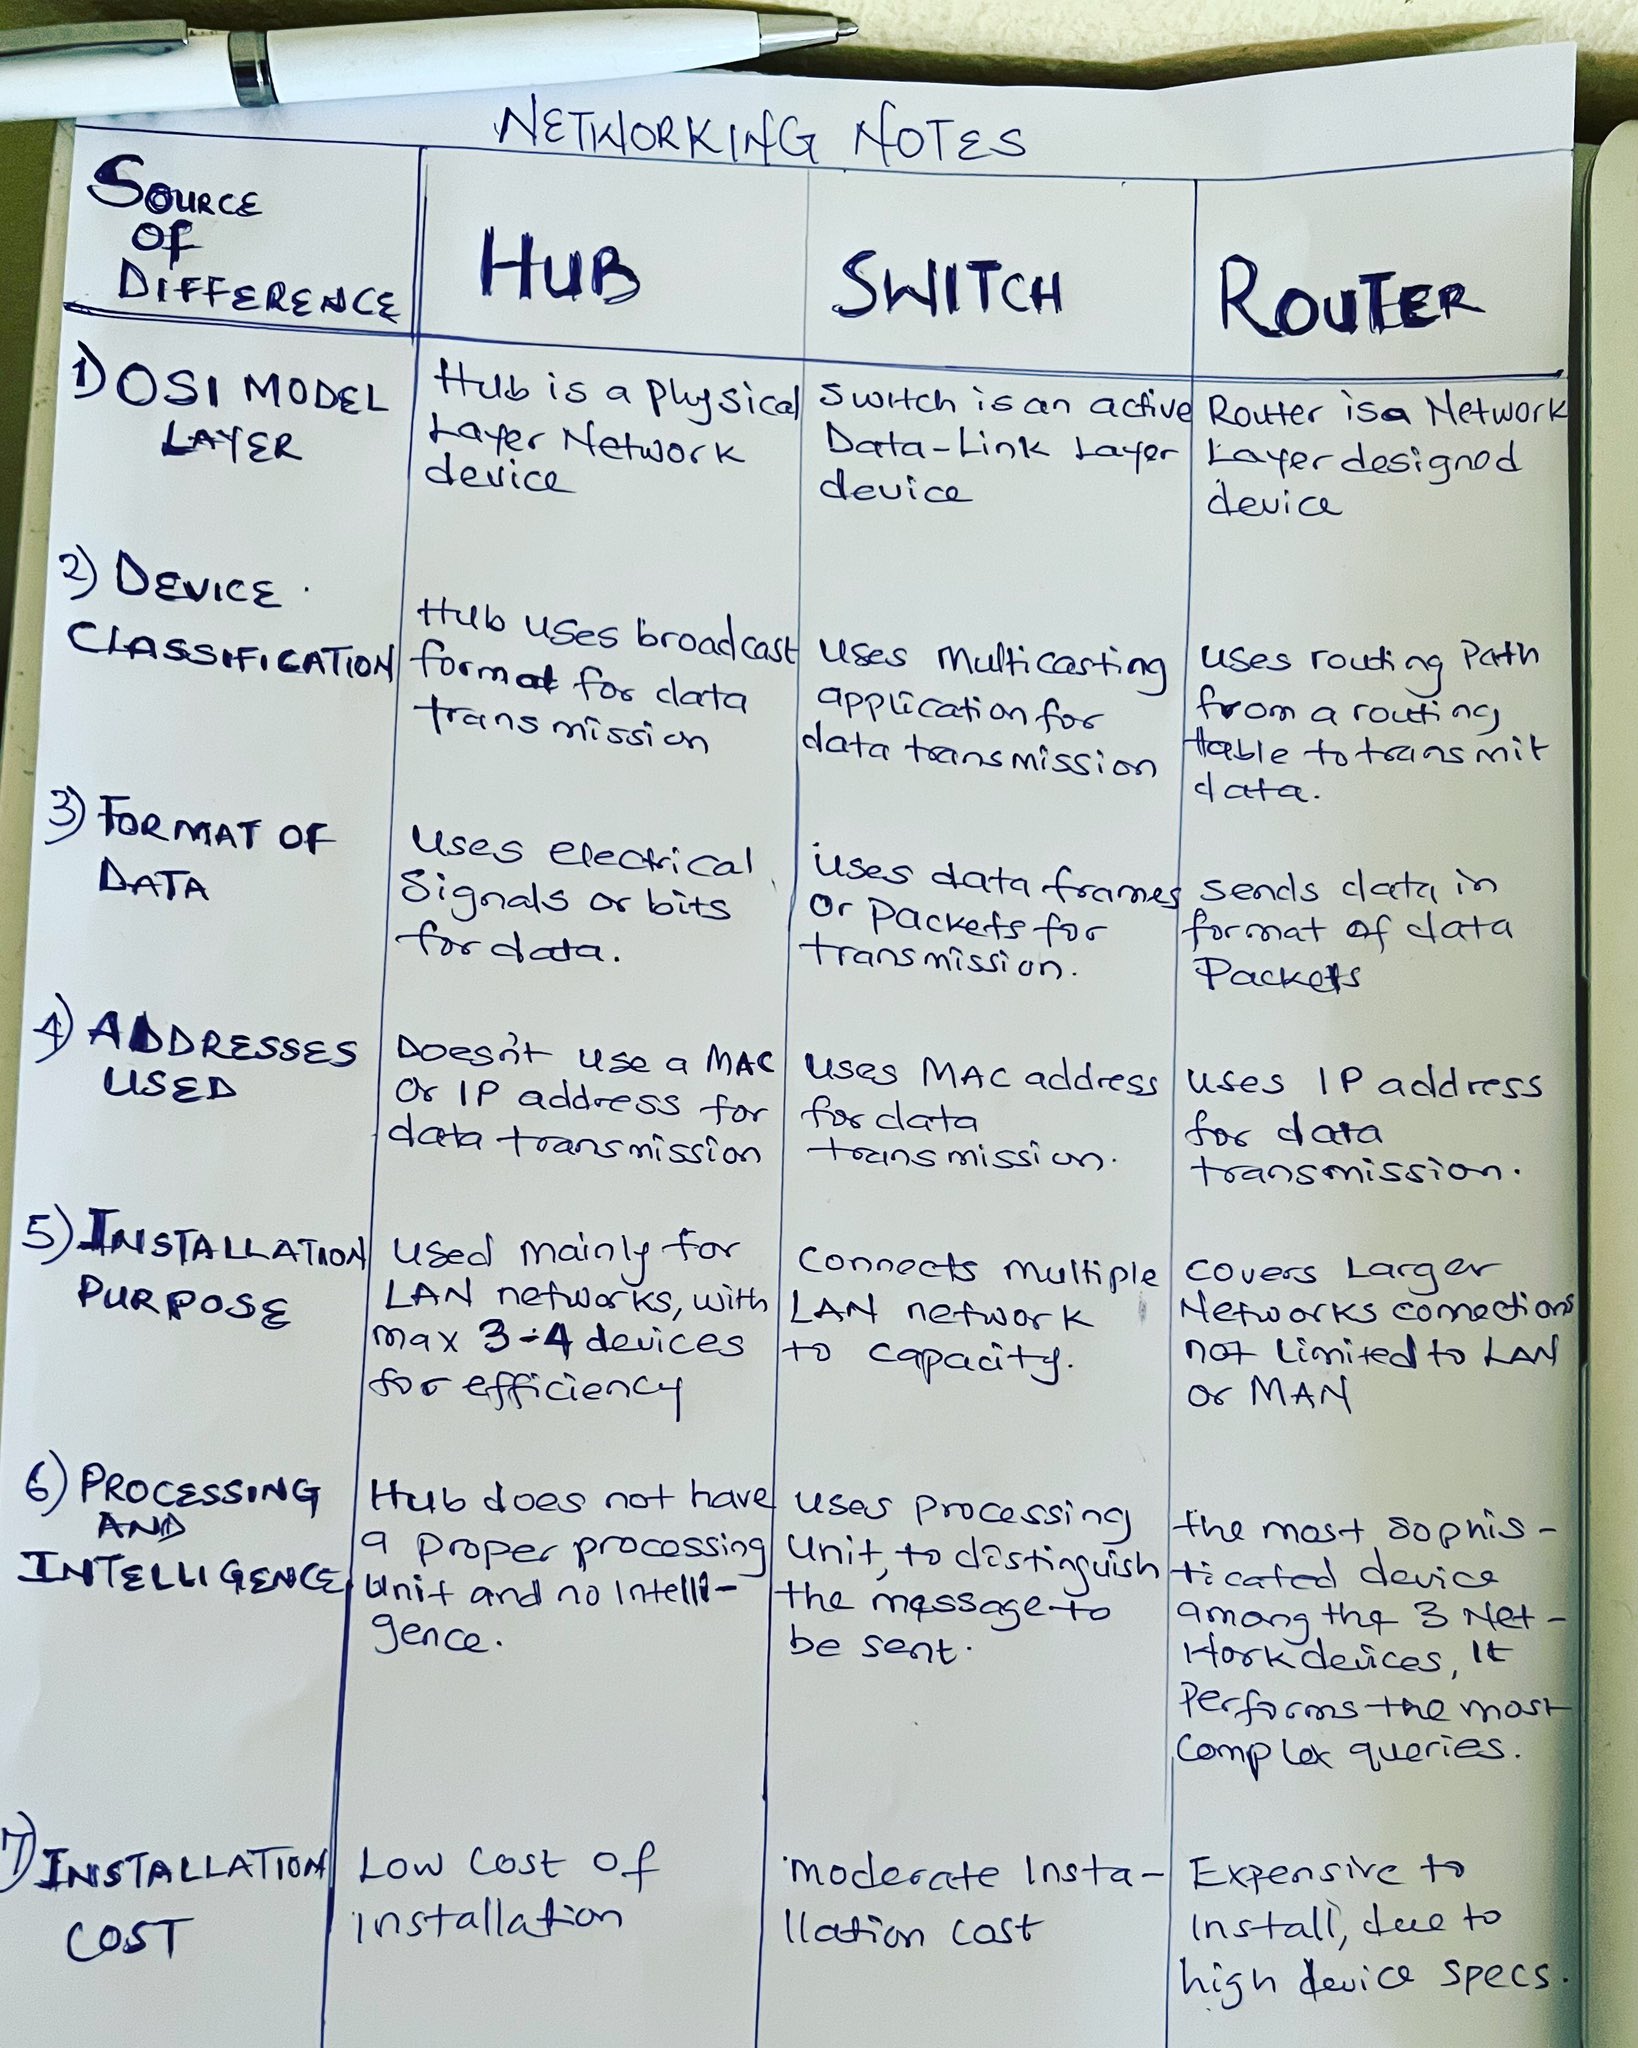 NETWORKING NOTES
SOURCE
OF
DIFFERENCE
HUB
SWITCH
ROUTER
1) OSI MODEL
LAYER
Hub is a physical
Layer Network
device
Switch is an active
Data-Link Layer
device
Router is a Network
Layer designed
device
2) DEVICE
CLASSIFICATION
Hub uses broadcast
format for data
transmission
uses multicasting
application for
data transmission
uses routing path
from a routing
table to transmit
data.
3) FORMAT OF
DATA
uses electrical
signals or bits
for data.
uses data frames
or packets for
transmission.
sends data in
format of data
Packets
4) ADDRESSES
USED
Doesn't use a MAC
or IP address for
data transmission
uses MAC address
for data
transmission.
uses IP address
for data
transmission.
5) INSTALLATION
PURPOSE
used mainly for
LAN networks, with
max 3-4 devices
for efficiency
connects multiple
LAN network
to capacity.
covers Larger
Networks connections
not limited to LAN
or MAN
6) PROCESSING
AND
INTELLIGENCE
Hub does not have
a proper processing
unit and no intelli-
gence.
uses processing
unit, to distinguish
the message to
be sent.
the most sophis-
ticated device
among the 3 Net-
work devices, It
performs the most
complex queries.
7) INSTALLATION
COST
Low cost of
installation
moderate Insta-
llation cost
Expensive to
install, due to
high device specs.